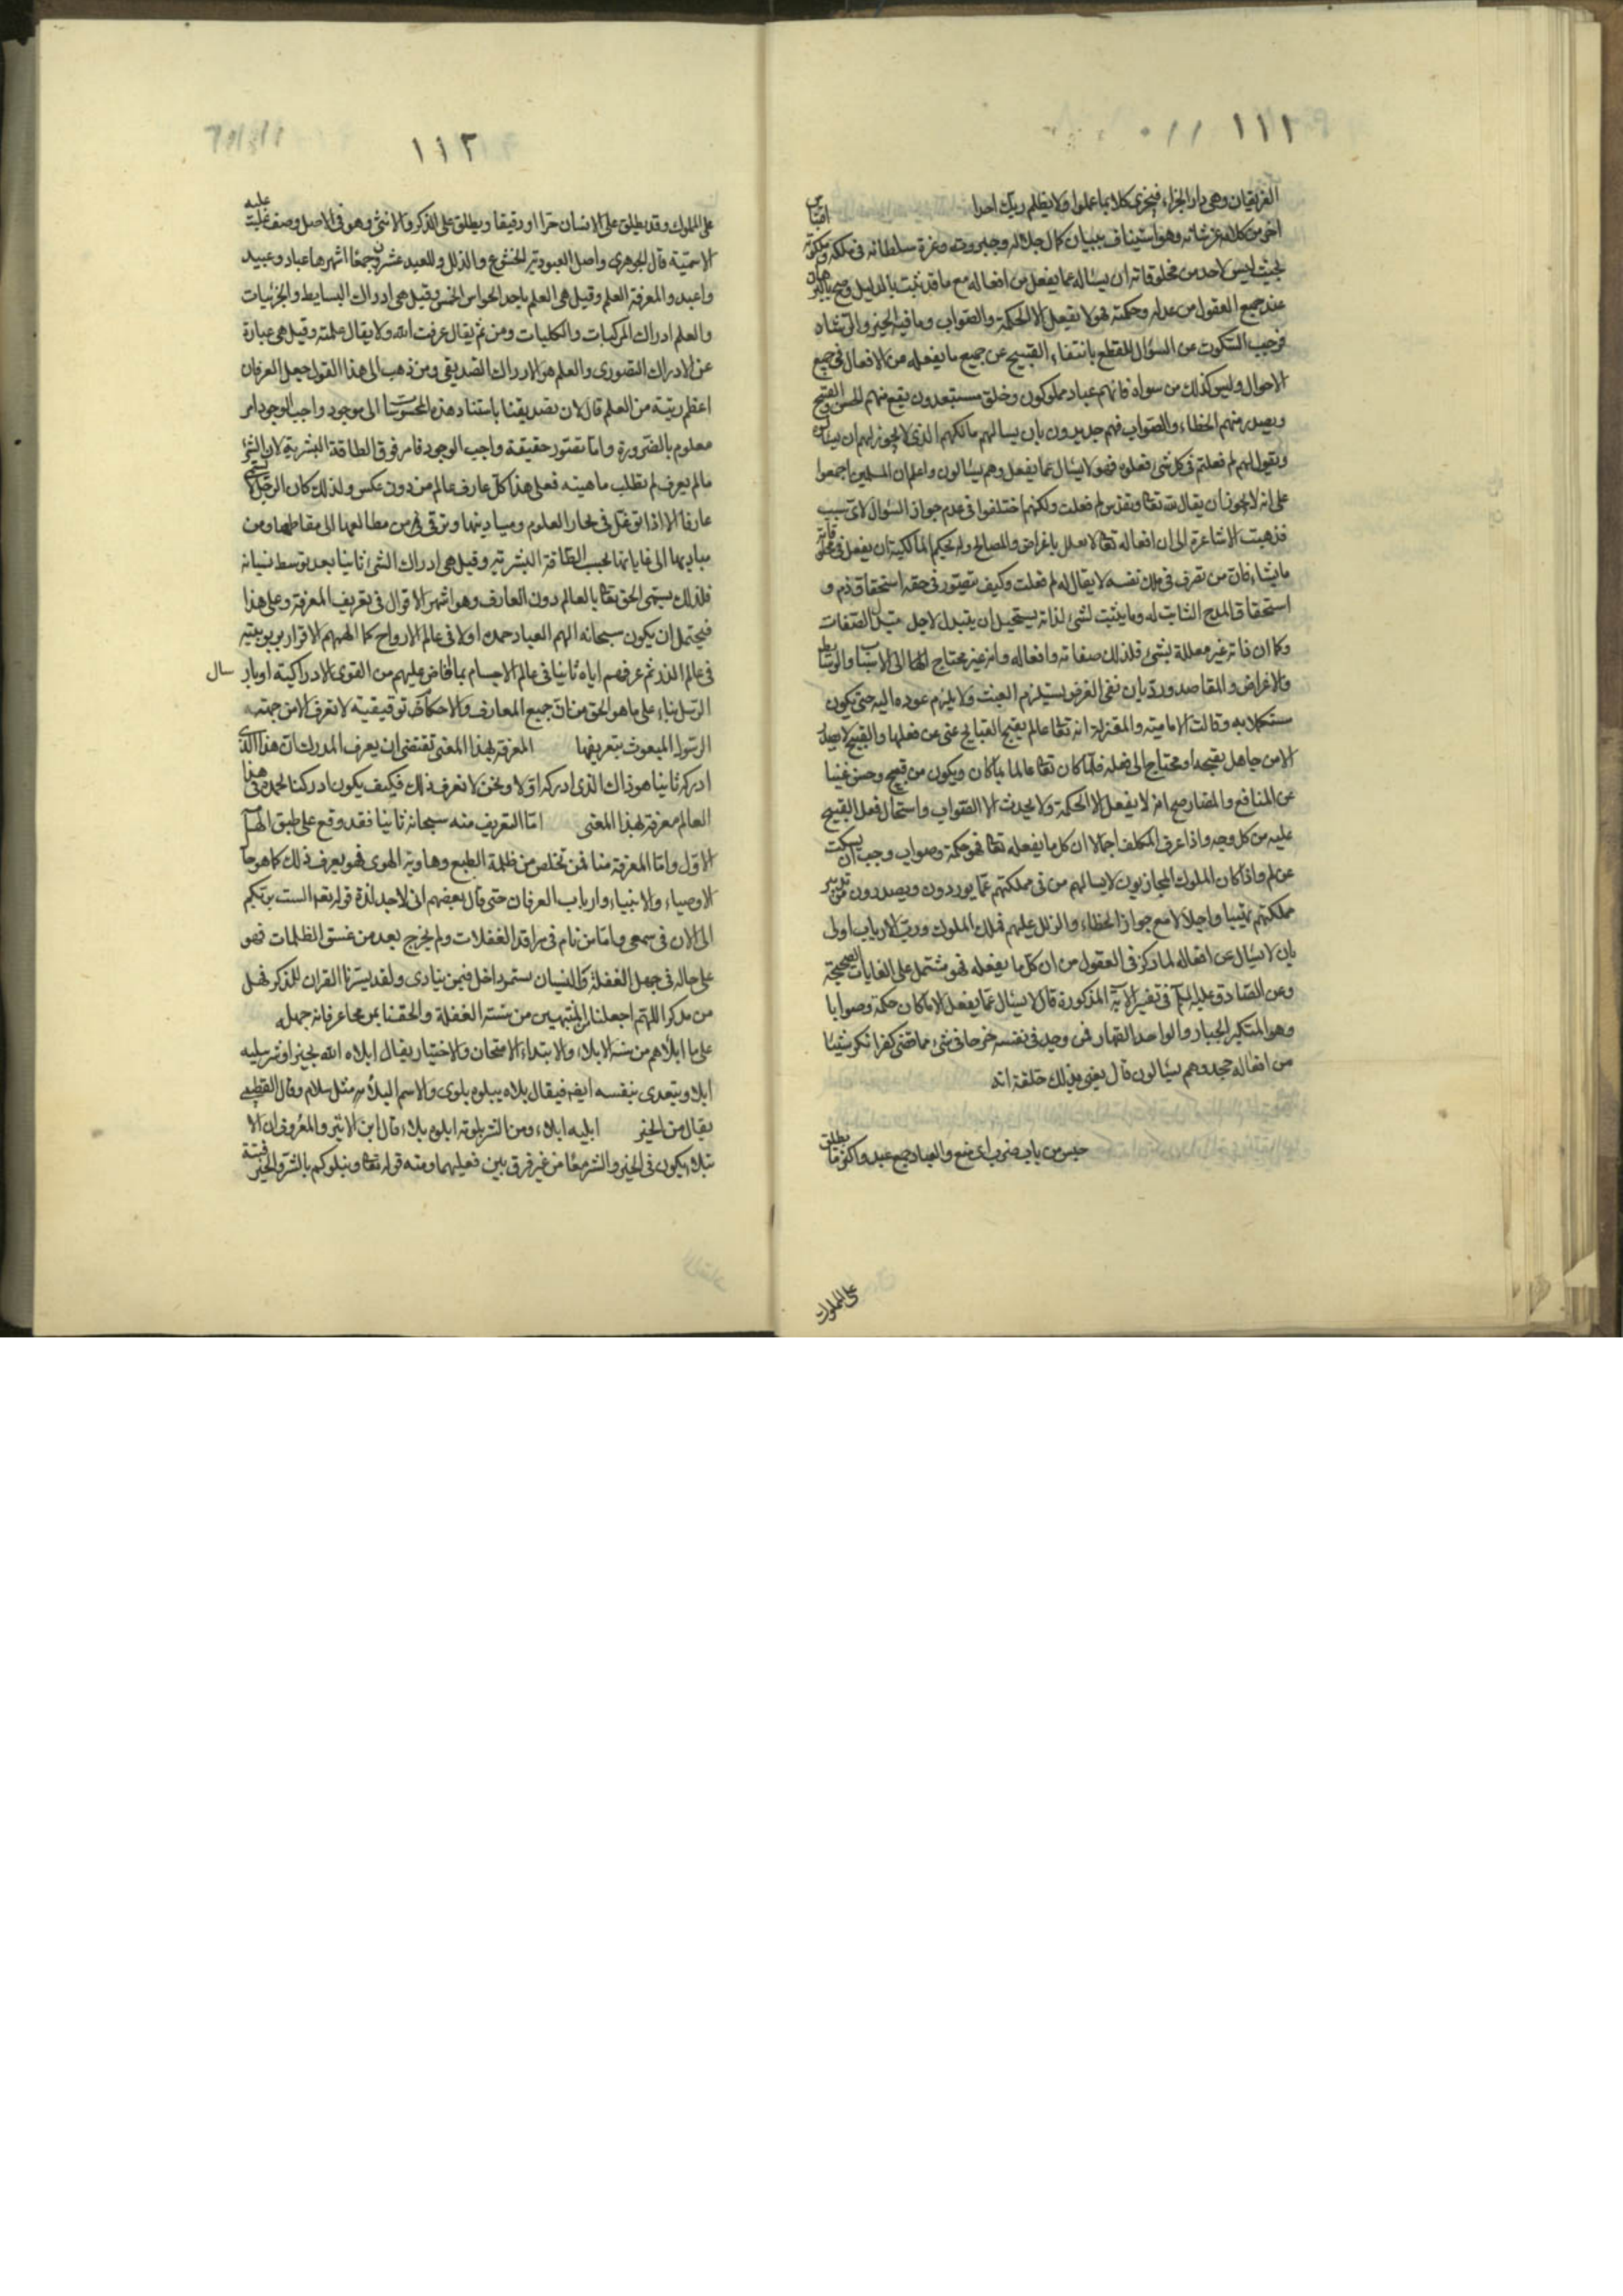 ١١١
الفريقان وهي دار الجزاء فيجزى كلا بما عملوا ولا يظلم ربك احدا اقتباس
اخر من كلامه عز شانه وهو استيناف ببيان كمال جلاله وجبروته وعزة سلطانه في ملكه وملكوته
بحيث ليس لاحد من مخلوقاته ان يساله عما يفعل من افعاله مع ما قد ثبت بالدليل وصح بالبرهان
عند جميع العقول من عدله وحكمته فهو لا يفعل الا الحكمة والصواب وما فيه الخير والرشاد
فوجب السكوت عن السؤال للقطع بانتفاء القبيح عن جميع ما يفعله من الافعال في جميع
الاحوال وليس كذلك من سواه فانهم عباد مملوكون وخلق مستعبدون يقع منهم الحسن والقبيح
ويصدر منهم الخطاء والصواب فهم جديرون بان يسالهم مالكهم الذي لا يجوز لهم ان يسالوه
ويقول لهم لم فعلتم في كل شيء فعلوه فهو لا يسال عما يفعل وهم يسالون واعلم ان المسلمين اجمعوا
على انه لا يجوز ان يقال لله تعا وتقدس لم فعلت ولكنهم اختلفوا في عدم جواز السؤال لاى سبب
فذهبت الاشاعرة الى ان افعاله تعا لا تعلل باغراض والمصالح وله بحكم المالكية ان يفعل في مخلوقاته
ما يشاء فان من تصرف في ملك نفسه لا يقال له لم فعلت وكيف يتصور في حقه استحقاق ذم و
استحقاق المدح الثابت له وما يثبت لشئ لذاته يستحيل ان يتبدل لاجل تبدل الصفات
وكما ان ذاته غير معللة بشئ فلذلك صفاته وافعاله وانه غير محتاج الى الاسباب والوسايط
والاغراض والمقاصد ورد بان نفى الغرض يستلزم العبث ولا يلزم عوده اليه حتى يكون
مستكملا به وقالت الامامية والمعتزلة انه تعا عالم بقبح القبايح غنى عن فعلها والقبيح لا يصدر
الا من جاهل بقبحه او محتاج الى فعله فلما كان تعا عالما بما كان ويكون من قبيح وحسن غنيا
عن المنافع والمضار صح انه لا يفعل الا الحكمة ولا يحدث الا الصواب واستحال فعل القبيح
عليه من كل وجه واذا عرف المكلف اجمالا ان كل ما يفعله تعا فهو حكمة وصواب وجب ان يسكت
عن لم واذا كان الملوك المجازيون لا يسالهم من في مملكتهم عما يوردون ويصدرون من تدبير
مملكتهم تهيبا واجلالا مع جواز الخطاء والزلل عليهم فملك الملوك ورب الارباب اولى
بان لا يسال عن افعاله لما ركز في العقول من ان كل ما يفعله فهو مشتمل على الغايات الصحيحة
وعن الصادق عليه السلم في تفسير الاية المذكورة قال لا يسال عما يفعل لانه لا يفعل الا ما كان حكمة وصوابا
وهو المتكبر الجبار والواحد القهار فمن وجد في نفسه حرجا في شئ مما قضى كفر ومن انكر شيئا
من افعاله جحد وهم يسالون قال يعنى بذلك خلقه انه
حبس من باب ضرب اى منع والعباد جمع عبد واكثر ما يطلق
على المملوك
١١٢
على المملوك وقد يطلق على الانسان حرا او رقيقا ويطلق على الذكر والانثى وهو في الاصل وصف غلبت عليه
الاسمية قال الجوهرى واصل العبودية الخضوع والذل وللعبد عشرون جمعا اشهرها عباد وعبيد
واعبد والمعرفة العلم وقيل هى العلم باحد الحواس الخمس وقيل هى ادراك البسايط والجزئيات
والعلم ادراك المركبات والكليات ومن ثم يقال عرفت الله ولا يقال علمته وقيل هى عبارة
عن الادراك التصورى والعلم هو الادراك التصديقى ومن ذهب الى هذا القول جعل العرفان
اعظم رتبة من العلم قال لان تصديقنا باستناد هذه المحسوسات الى موجود واجب الوجود امر
معلوم بالضرورة واما تصور حقيقة واجب الوجود فامر فوق الطاقة البشرية لان الشئ
ما لم يعرف لم يطلب ماهيته فعلى هذا كل عارف عالم من دون عكس ولذلك كان الرجل لا يسمى
عارفا الا اذا توغل في بحار العلوم ومباديها وترقى من مطالعها الى مقاطعها ومن
مباديها الى غاياتها بحسب الطاقة البشرية وقيل هى ادراك الشئ ثانيا بعد توسط نسيانه
فلذلك يسمى الحق تعا بالعالم دون العارف وهو اشهر الاقوال في تعريف المعرفة وعلى هذا
فيحتمل ان يكون سبحانه الهم العباد حمده اولا في عالم الارواح كما الهمهم الاقرار بربوبيته
في عالم الذر ثم عرفهم اياه ثانيا في عالم الاجسام بما افاض عليهم من القوى الادراكية او بارسال
الرسل بناء على ما هو الحق من ان جميع المعارف والاحكام توقيفية لا تعرف الا من جهته
الرسول المبعوث بتعريفها المعرفة بهذا المعنى تقتضى ان يعرف المدرك ان هذا الذى
ادركه ثانيا هو ذاك الذى ادركه اولا ونحن لا نعرف ذلك فكيف يكون ادركنا لحمده في هذا
العالم معرفة بهذا المعنى اما التعريف منه سبحانه ثانيا فقد وقع على طبق الهامه
الاول واما المعرفة منا فمن تخلص من ظلمة الطبع وهاوية الهوى فهو يعرف ذلك كما هو حال
الاوصياء والانبياء وارباب العرفان حتى قال بعضهم انى لاجد لذة قوله تعا الست بربكم
الى الان في سمعى واما من نام في مراقد الغفلات ولم يخرج بعد من غسق الظلمات فهو
على حاله في جهل الغفلة والنسيان مستمر داخل فيمن ينادى ولقد يسرنا القران للذكر فهل
من مدكر اللهم اجعلنا من المنتبهين من سنة الغفلة والحقنا بمن محا عرفانه جهله
على ما ابلاهم من سنة الابلاء والابتداء الامتحان والاختبار يقال ابلاه الله بخير او شر يبليه
ابلاء ويتعدى بنفسه ايضا فيقال بلاه يبلوه بلوى والاسم البلاء مثل سلام وقال القطيبى
يقال من الخير ابليه ابلاء ومن الشر بلوته ابلوه بلاء قال ابن الاثير والمعروف ان الا
بتلاء يكون في الخير والشر معا من غير فرق بين فعليهما ومنه قوله تعا ونبلوكم بالشر والخير فتنة